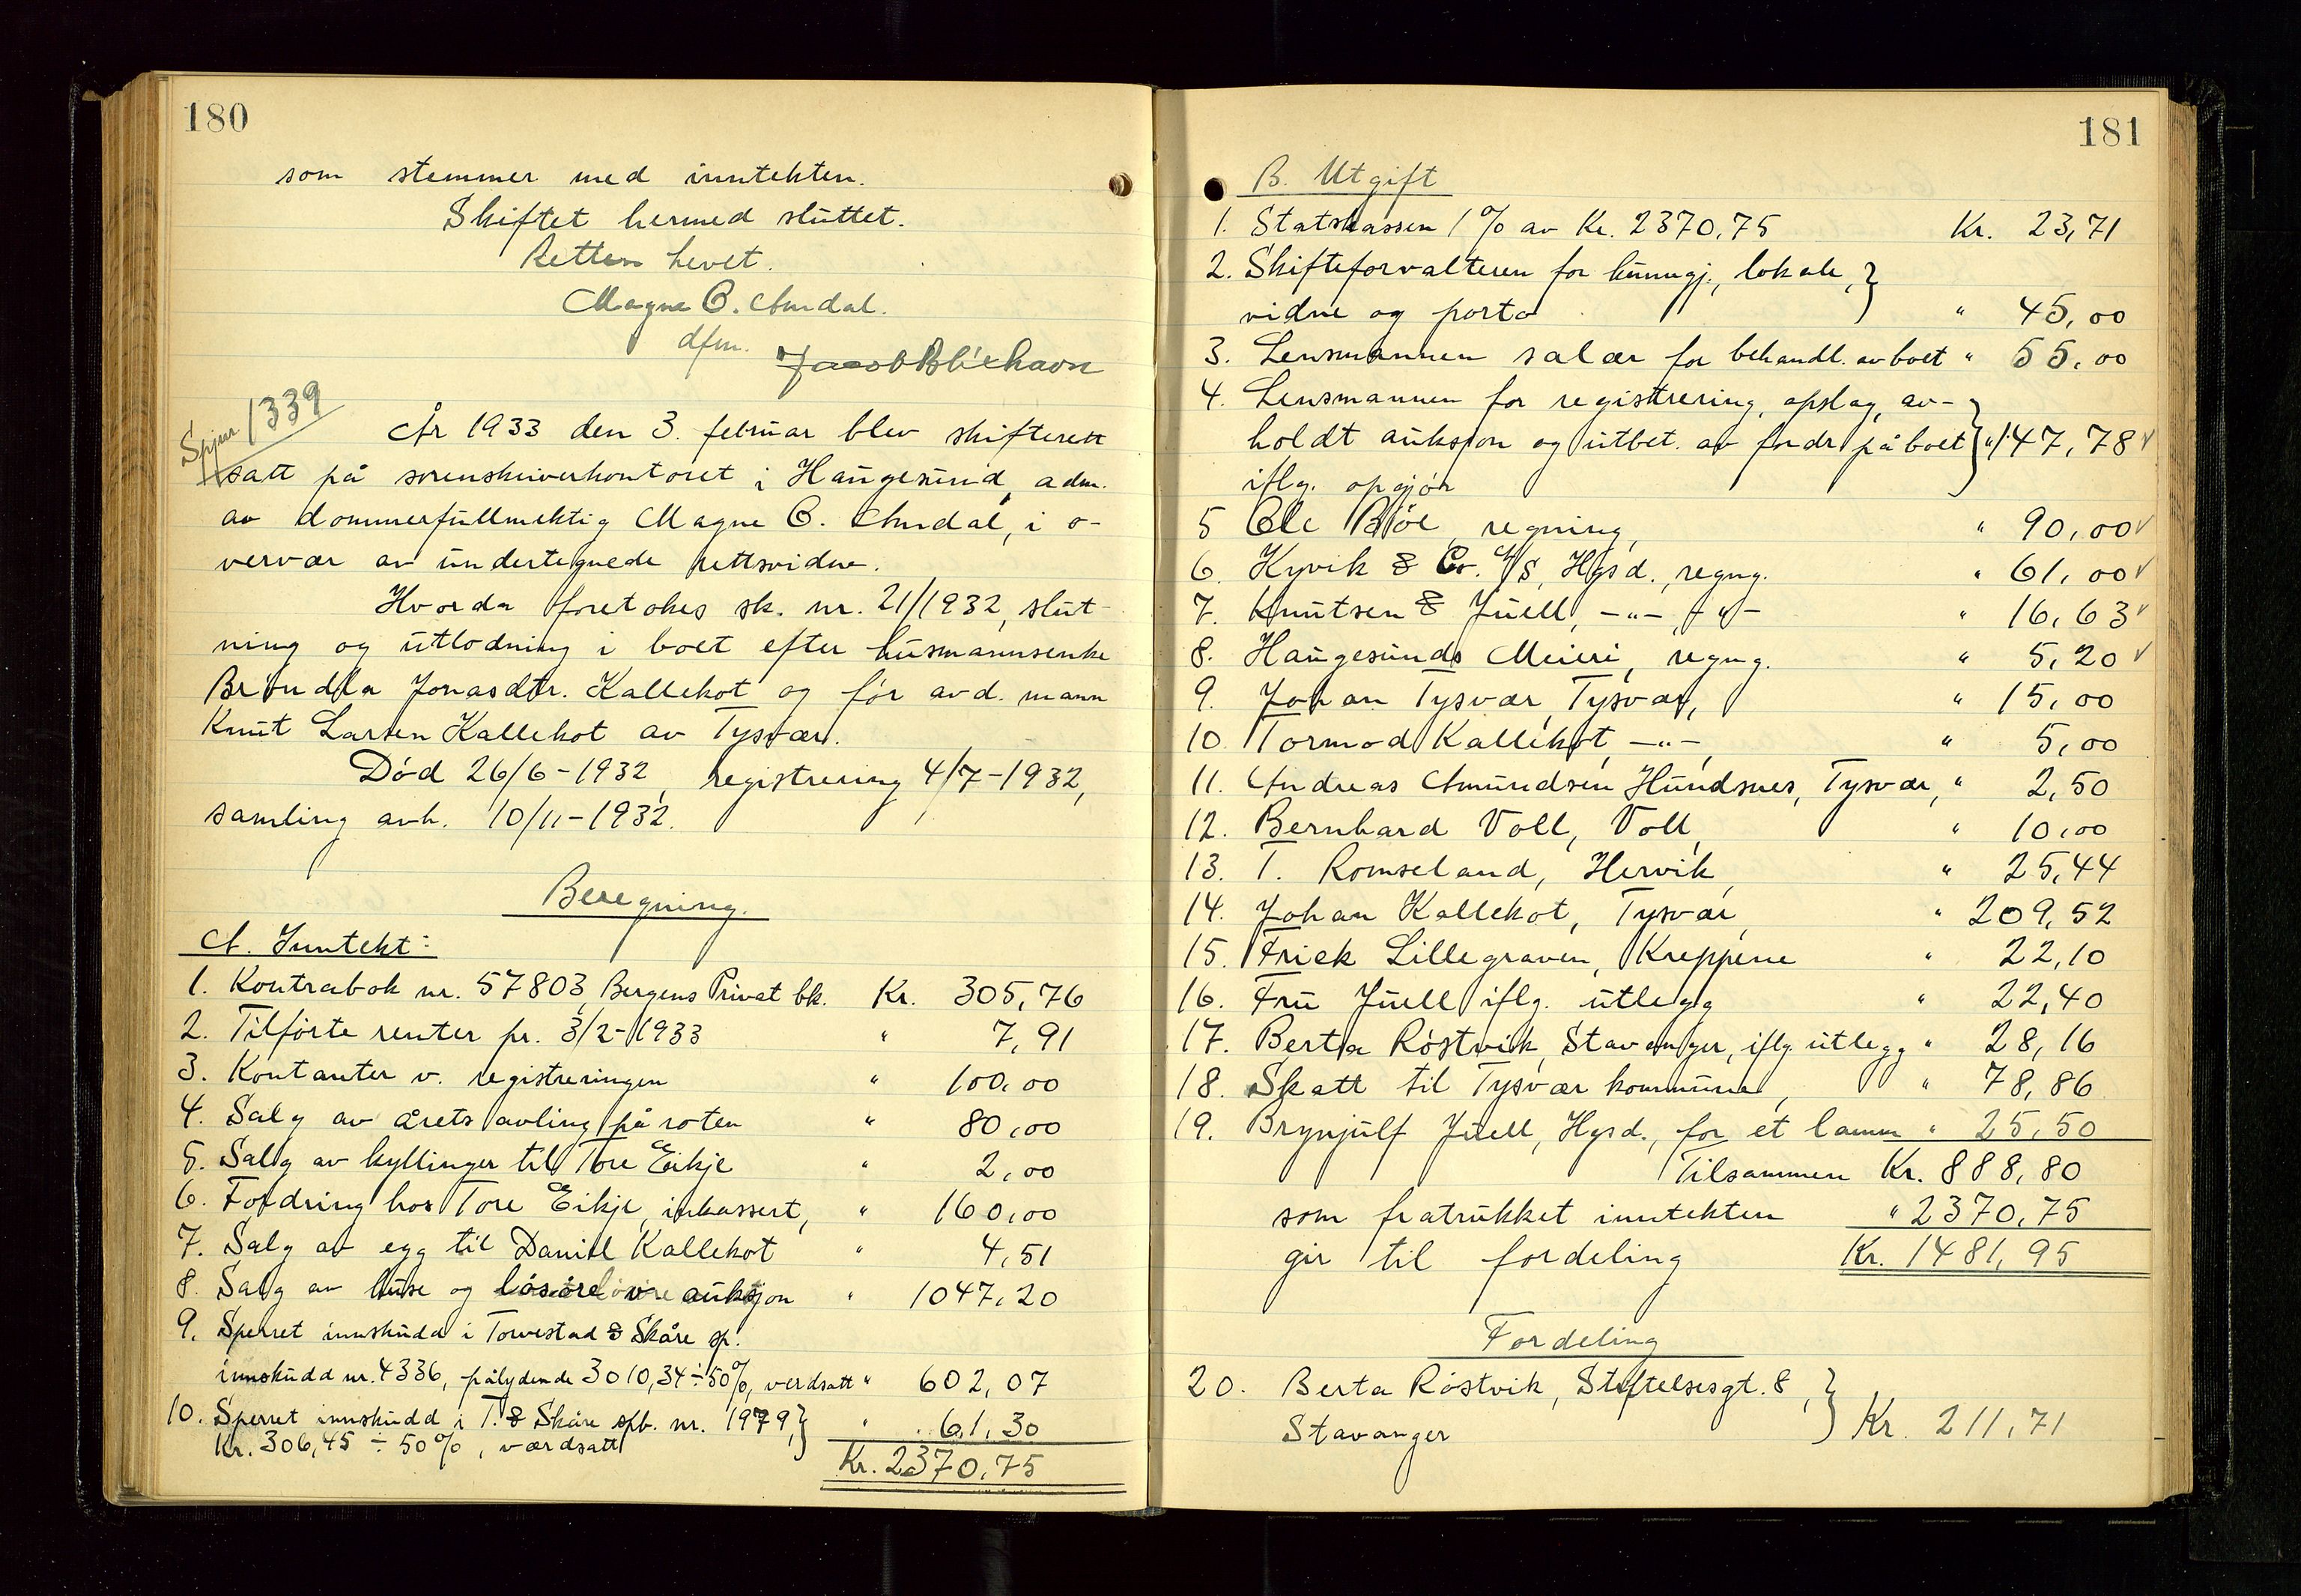 180
som stemmer med inntekten.
Skiftet hermed sluttet.
Retten hevet.
Magne O. Aardal.
dfm.
Spjur 1339
År 1933 den 3. februar blev skifterett
satt på sorenskriverkontoret i Haugesund, adm.
av dommerfullmektig Magne O. Aardal, i o-
vervær av undertegnede rettsvidne.
Hvorda foretokes sk. nr. 21/1932, slut-
ning og utlodning i boet efter husmannsenke
Brondla Jonasdtr. Kallekot og før avd. mann
Knut Larsen Kallekot av Tysvær.
Død 26/6-1932, registrering 4/7-1932,
samling avh. 10/11-1932.
Beregning.
A. Inntekt:
1. Kontrabok nr. 57803, Bergens Privat bk. Kr. 305,76
2. Tilførte renter pr. 3/2-1933 " 7,91
3. Kontanter v. registreringen " 100,00
4. Salg av årets avling på roten " 80,00
5. Salg av kyllinger til Tore Eikje " 2,00
6. Fordring hos Tore Eikje, inkassert, " 160,00
7. Salg av egg til Daniel Kallekot " 4,51
8. Salg av huse og løsøre v auksjon " 1047,20
9. Sperret innskudd i Torvestad & Skåre sp.
innskudd nr. 4336, pålydende 3010,34 ÷ 50%, verdsatt " 602,07
10. Sperret innskudd i T. & Skåre spb. nr. 1979, } " 61,30
Kr. 306,45 ÷ 50%, værdsatt
Kr. 2370,75
181
B. Utgift
1. Statskassen 1% av Kr. 2370,75 Kr. 23,71
2. Skifteforvalteren for kunngj., lokale, }
vidne og porto " 45,00
3. Lensmannen salær for behandl. av boet " 55,00
4. Lensmannen for registrering, opslag, av- }
holdt auksjon og utbet. av fordr på boet " 147,78 √
iflg. opgjør
5 Ole Bøe, regning, " 90,00 √
6. Kyvik & Co. A/S, Hgsd., regng. " 61,00 √
7. Knutsen & Juell, -"-, -"- " 16,63 √
8. Haugesunds Meieri, regng. " 5,20 √
9. Johan Tysvær, Tysvær, " 15,00
10. Tormod Kallekot, -"-, " 5,00
11. Andreas Amundsen Hundsnes, Tysvær, " 2,50
12. Bernhard Voll, Voll, " 10,00
13. T. Romseland, Hervik, " 25,44
14. Johan Kallekot, Tysvær, " 209,52
15. Frick Lillegraven, Kreppene " 22,10
16. Fru Juell iflg. utlegg " 22,40
17. Berta Røstvik, Stavanger, iflg. utlegg " 28,16
18. Skatt til Tysvær kommune, " 78,86
19. Brynjulf Juell, Hgsd., for et lamm " 25,50
Tilsammen Kr. 888,80
som fratrukket inntekten " 2370,75
gir til fordeling Kr. 1481,95
Fordeling
20. Berta Røstvik, Stiftelsesgt. 8, }
Stavanger Kr. 211,71